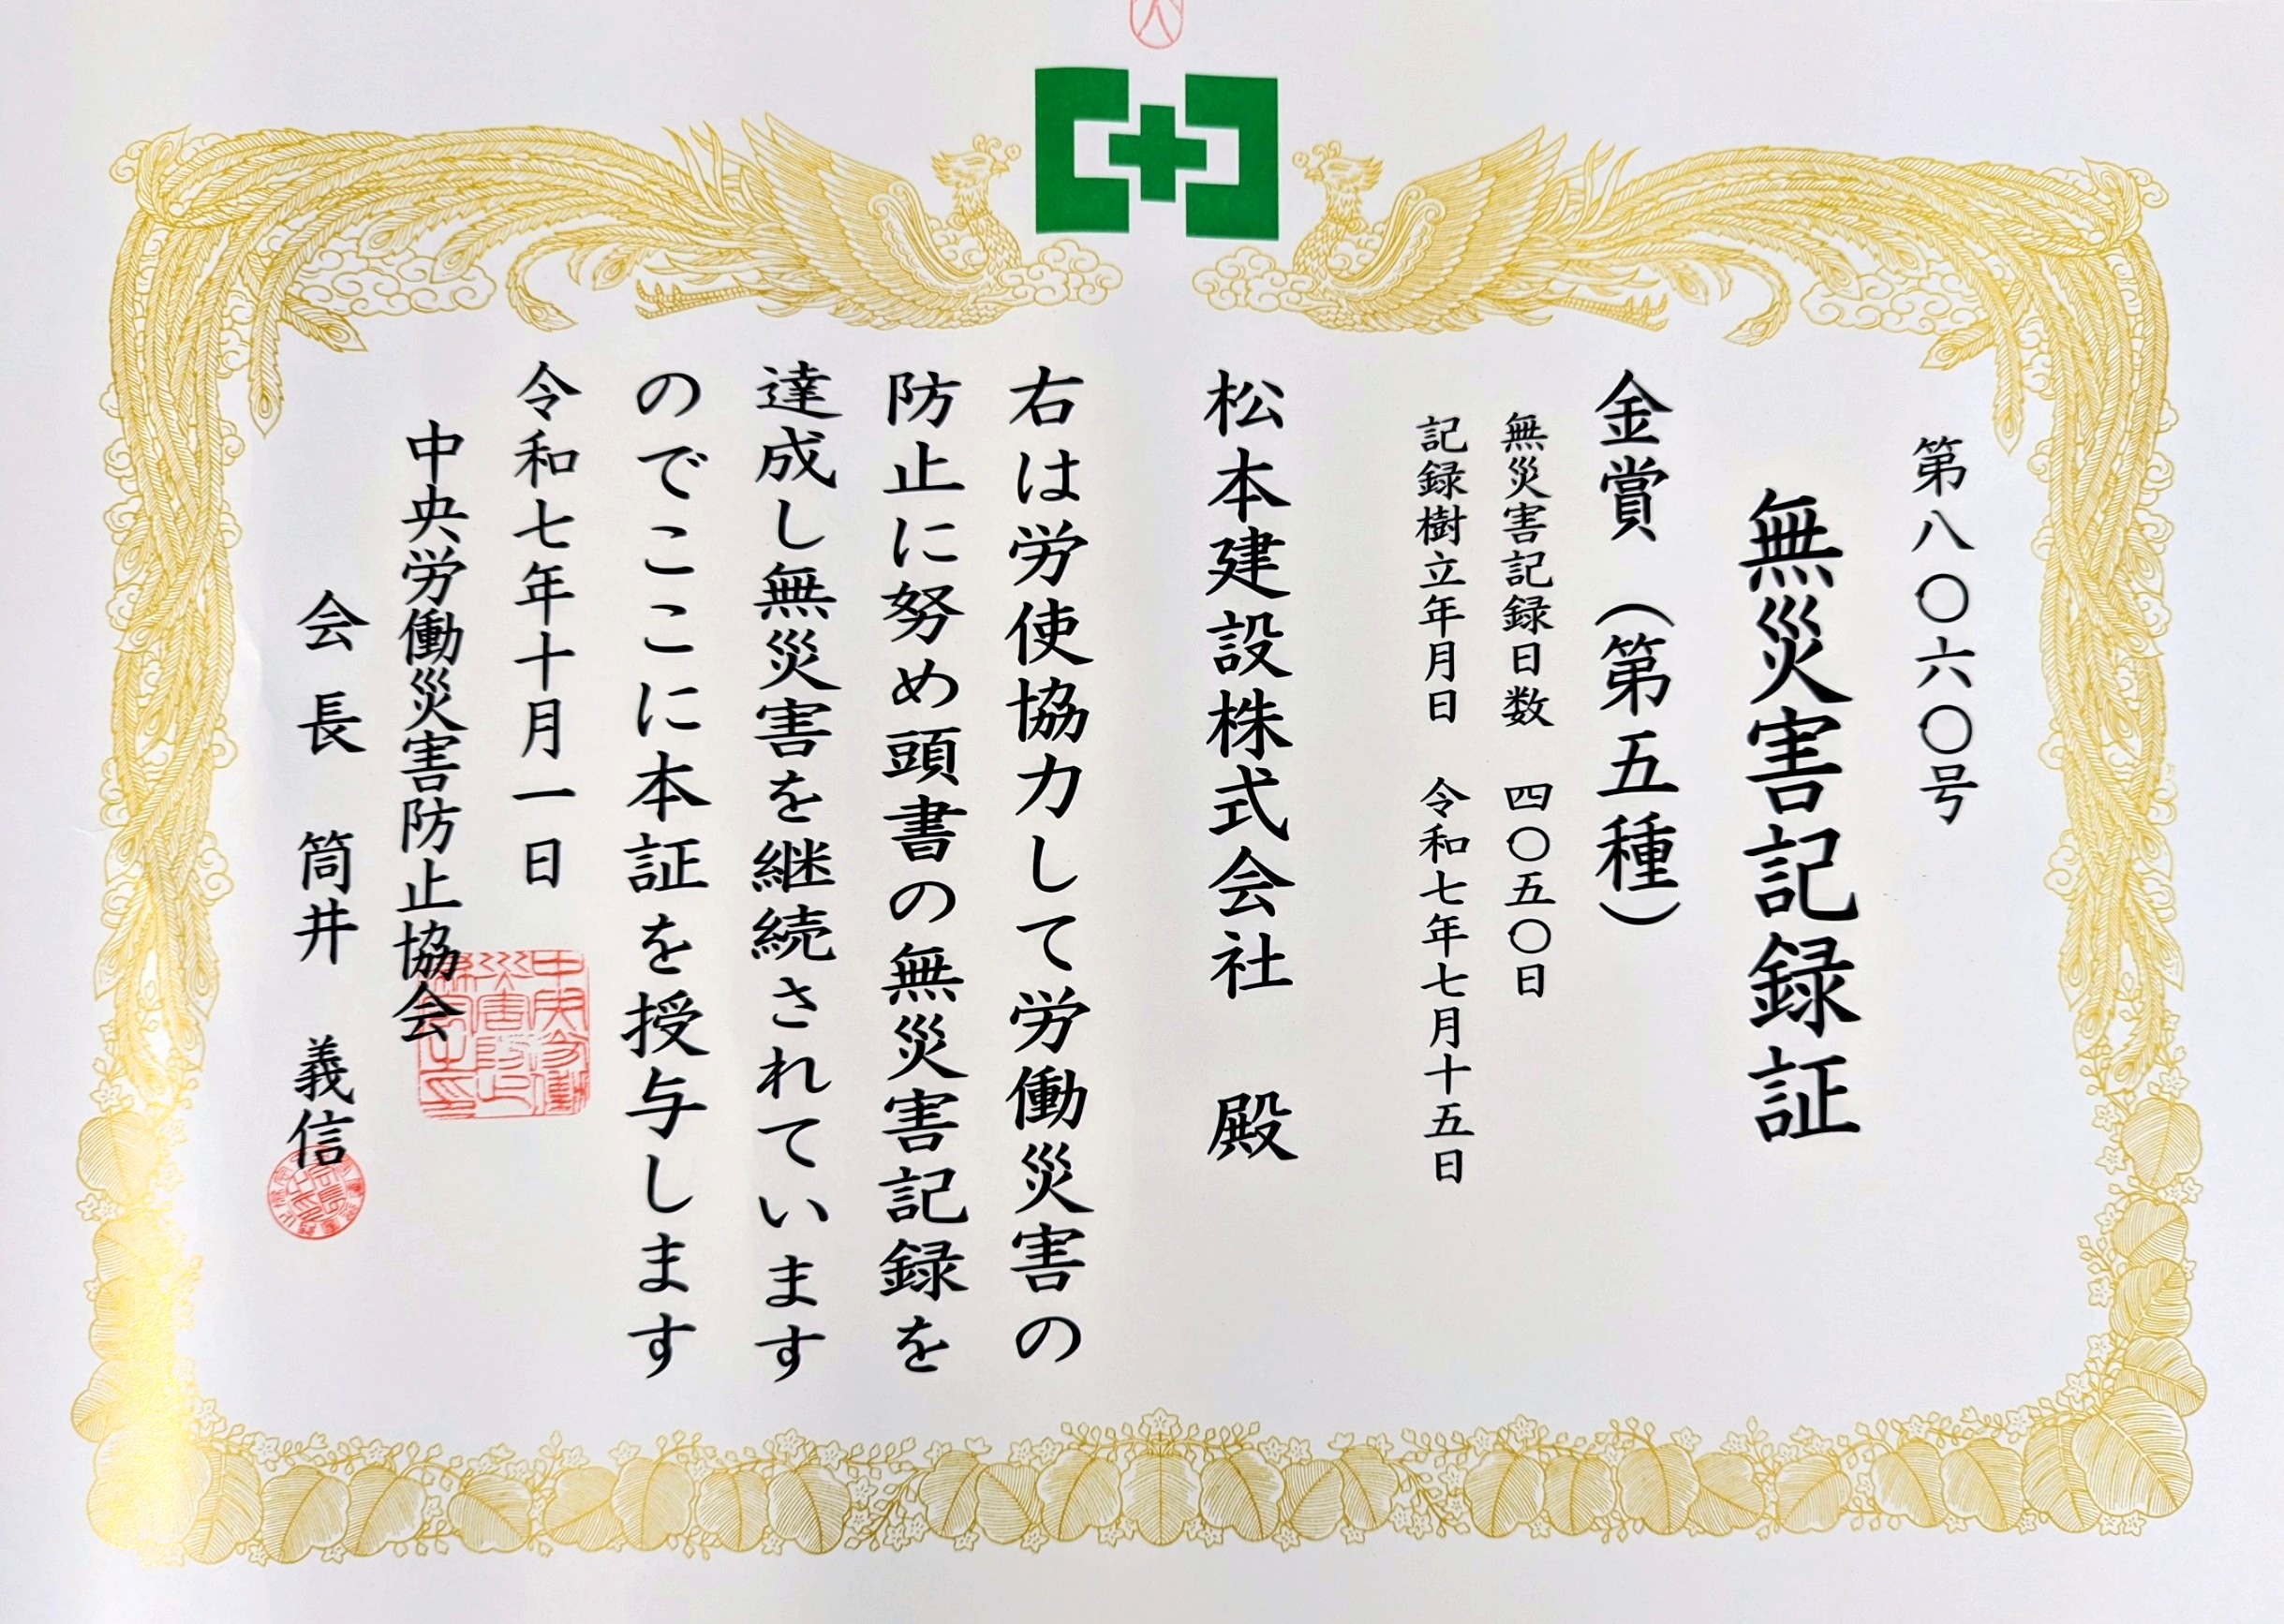 第八〇六〇号
無災害記録証
金賞（第五種）
無災害記録日数　四〇五〇日
記録樹立年月日　令和七年七月十五日
松本建設株式会社　殿
右は労使協力して労働災害の
防止に努め頭書の無災害記録を
達成し無災害を継続されています
のでここに本証を授与します
令和七年十月一日
中央労働災害防止協会
会長　筒井　義信